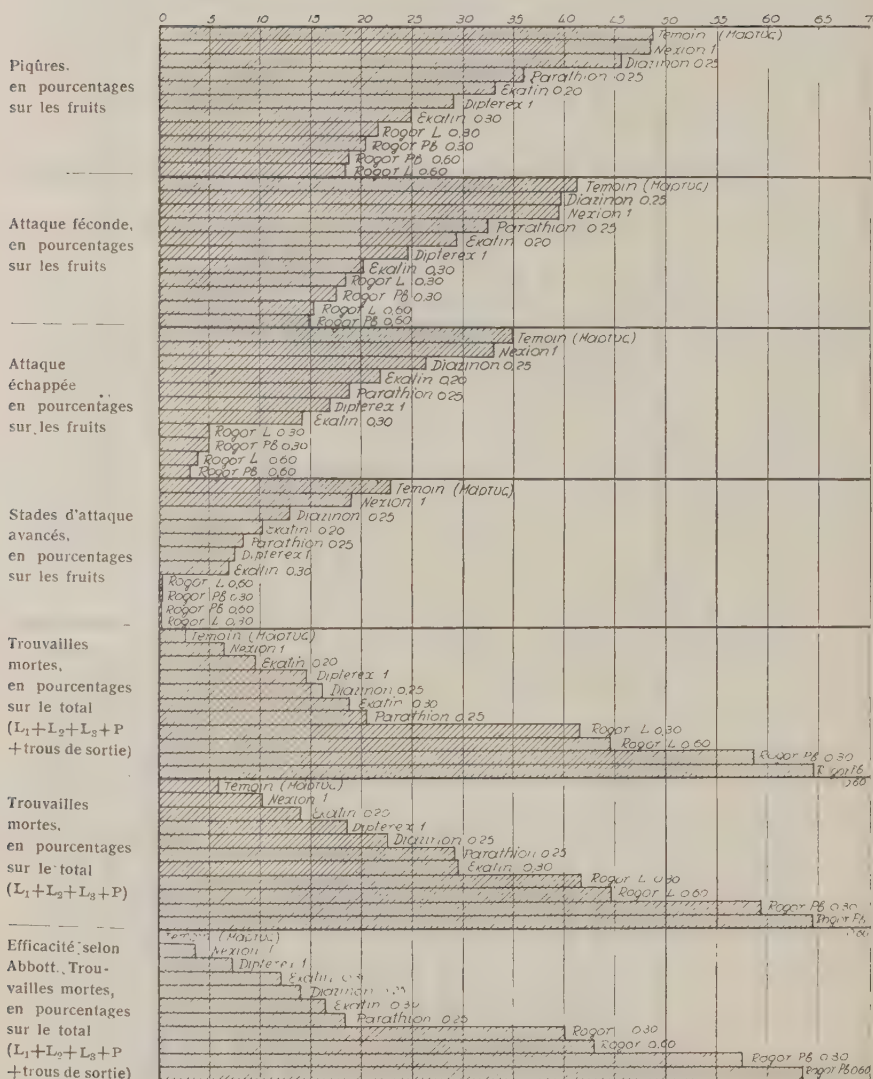 0 5 10 15 20 25 30 35 40 45 50 55 60 65 7
Piqûres.
en pourcentages
sur les fruits
Temoin (Μαρτυς)
Nexion 1
Diazinon 0.25
Parathion 0.25
Ekatin 0,20
Dipterex 1
Ekatin 0.30
Rogor L 0,30
Rogor Pβ 0.30
Rogor Pβ 0,60
Rogor L 0.60
Attaque féconde,
en pourcentages
sur les fruits
Temoin (Μαρτυς)
Diazinon 0,25
Nexion 1
Parathion 0.25
Ekatin 0.20
Dipterex 1
Ekatin 0,30
Rogor L 0.30
Rogor Pβ 0.30
Rogor L 0,60
Rogor Pβ 0,60
Attaque
échappée
en pourcentages
sur les fruits
Temoin (Μαρτυς)
Nexion 1
Diazinon 0,25
Ekatin 0,20
Parathion 0.25
Dipterex 1
Ekatin 0,30
Rogor L 0.30
Rogor Pβ 0.30
Rogor L 0.60
Rogor Pβ 0,60
Stades d'attaque
avancés,
en pourcentages
sur les fruits
Temoin (Μαρτυς)
Nexion 1
Diazinon 0.25
Ekatin 0.20
Parathion 0,25
Dipterex 1
Ekatin 0.30
Rogor L 0,60
Rogor Pβ 0.30
Rogor Pβ 0.60
Rogor L 0.30
Trouvailles
mortes,
en pourcentages
sur le total
(L₁+L₂+L₃+P
+trous de sortie)
Temoin (Μαρτυς)
Nexion 1
Ekatin 0.20
Dipterex 1
Diazinon 0,25
Ekatin 0.30
Parathion 0,25
Rogor L 0,30
Rogor L 0.60
Rogor Pβ 0.30
Rogor Pβ
0.60
Trouvailles
mortes,
en pourcentages
sur le total
(L₁+L₂+L₃+P)
Temoin (Μαρτυς)
Nexion 1
Ekatin 0,20
Dipterex 1
Diazinon 0.25
Parathion 0.25
Ekatin 0.30
Rogor L 0.30
Rogor L 0.60
Rogor Pβ 0.30
Rogor Pβ
0.60
Efficacité selon
Abbott. Trou-
vailles mortes,
en pourcentages
sur le total
(L₁+L₂+L₃+P
+trous de sortie)
Temoin (Μαρτυς)
Nexion 1
Dipterex 1
Ekatin
Diazinon 0.25
Ekatin 0.30
Parathion 0.25
Rogor 0.30
Rogor 0,60
Rogor Pβ 0.30
Rogor Pβ 0.60